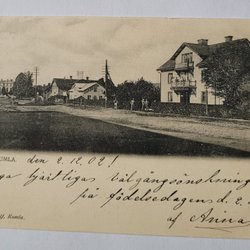 UMLA. den 2.12.02!
ga hjärtligas välgångsönskning
på födelsedagen d. 2.
af Anna
f, Kumla.